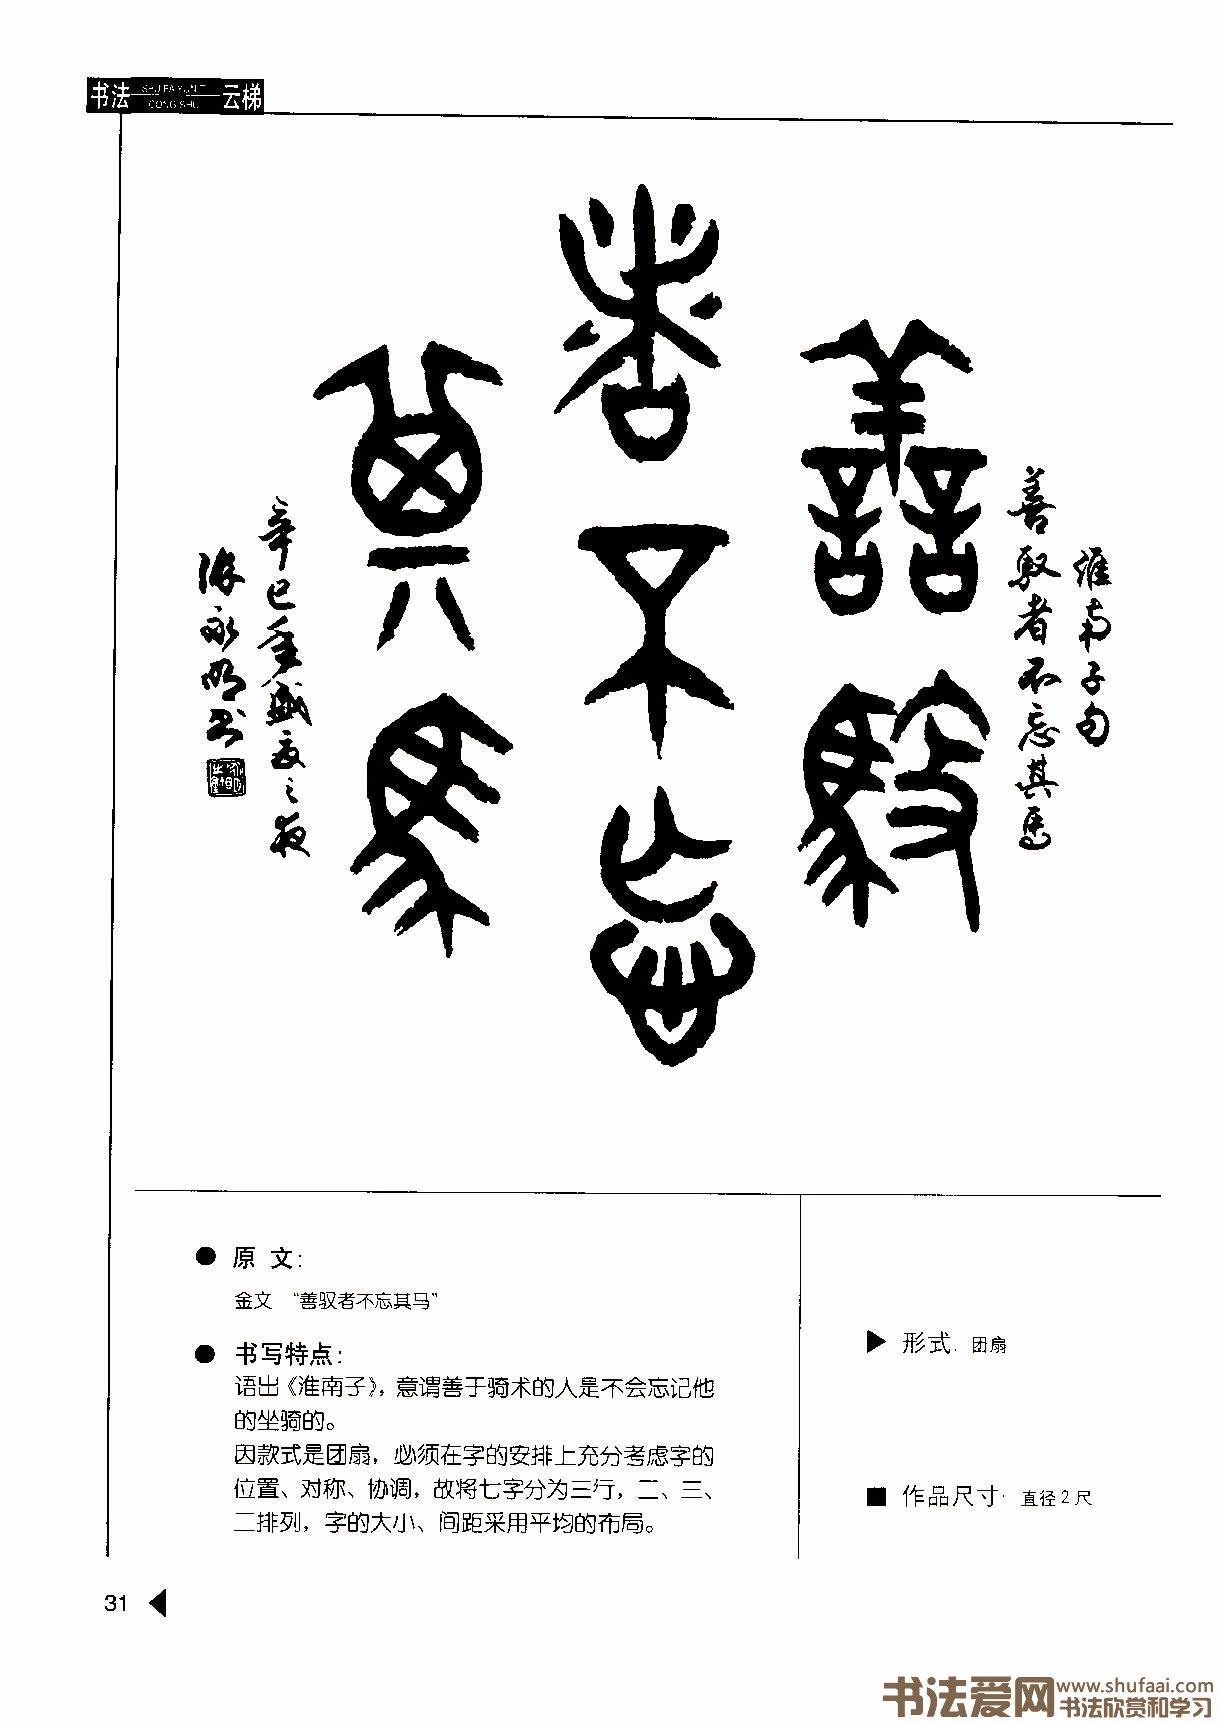 书法 SHU FA YUN TI 云梯
CONG SHU
善馭
者不忘
其馬
淮南子句
善驭者不忘其馬
辛巳年盛夏之夜
永明书
● 原 文:
金文 “善驭者不忘其马”
● 书写特点:
语出《淮南子》，意谓善于骑术的人是不会忘记他
的坐骑的。
因款式是团扇，必须在字的安排上充分考虑字的
位置、对称、协调，故将七字分为三行，二、三、
二排列，字的大小、间距采用平均的布局。
▶ 形式. 团扇
■ 作品尺寸· 直径2尺
31 ◀
书法爱网 www.shufaai.com
书法欣赏和学习